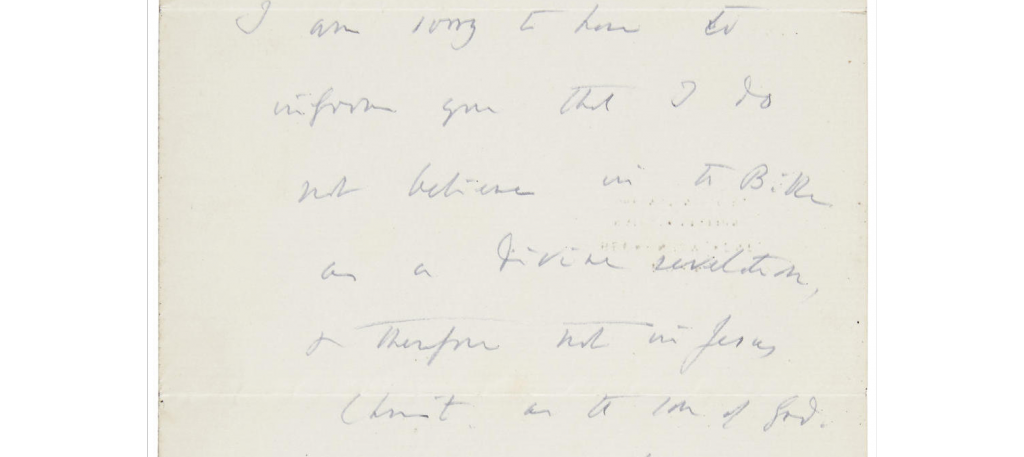 I am sorry to have to
inform you that I do
not believe in the Bible
as a divine revelation,
& therefore not in Jesus
Christ as the son of God.